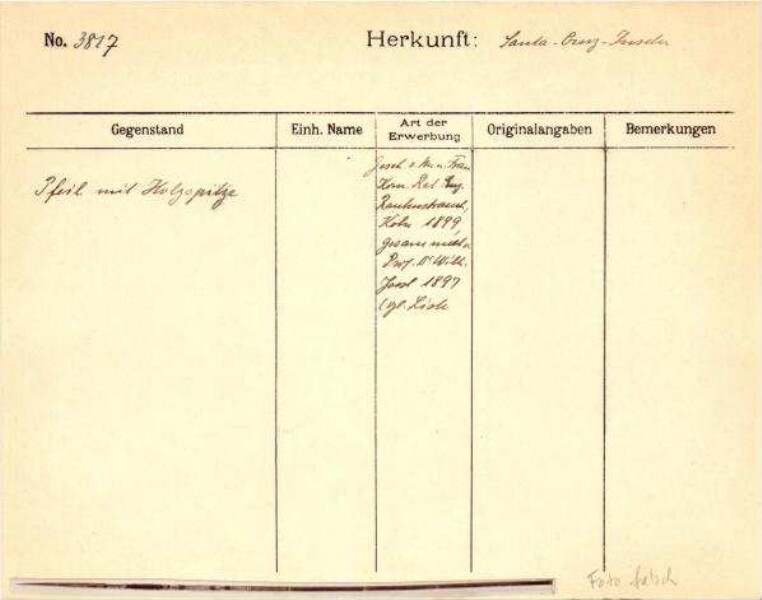 No. 3817
Herkunft: Santa-Cruz-Inseln
Gegenstand
Einh. Name
Art der
Erwerbung
Originalangaben
Bemerkungen
Pfeil mit Holzspitze
Gesch. v. u. Frau
Kom. Rat Eug.
Rautenstrauch,
Köln 1899,
gesammelt v.
Prof. Dr Wilh.
Joest 1897
(vgl. Liste
Foto falsch